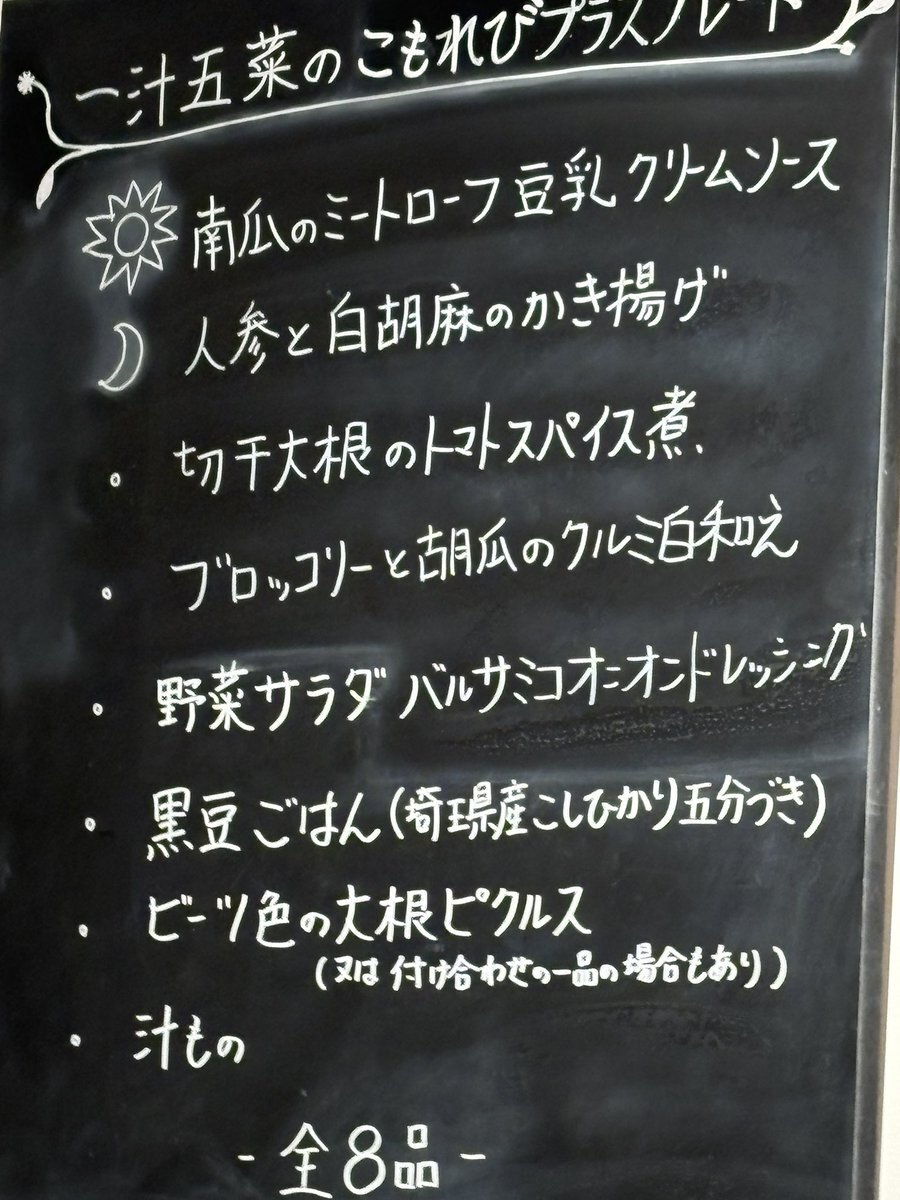 一汁五菜のこもれびプラスプレート
南瓜のミートローフ 豆乳クリームソース
人参と白胡麻のかき揚げ
・ 切干大根のトマトスパイス煮
・ ブロッコリーと胡瓜のクルミ白和え
・ 野菜サラダ バルサミコオニオンドレッシング
・ 黒豆ごはん(埼玉県産こしひかり五分づき)
・ ビーツ色の大根ピクルス
(又は付け合わせの一品の場合もあり)
・ 汁もの
- 全8品 -